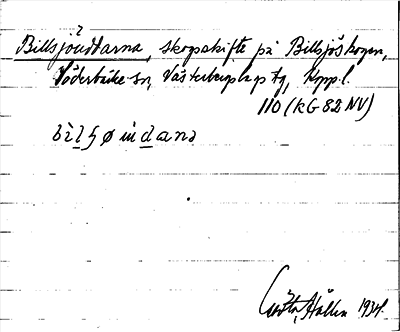 Billsjöuddarna, skogsskifte på Billsjöskogen,
Söderbärke sn, Västerbergslags tg, Kppl.
110 (KG 82 NV)
Gösta Hållén 1934.